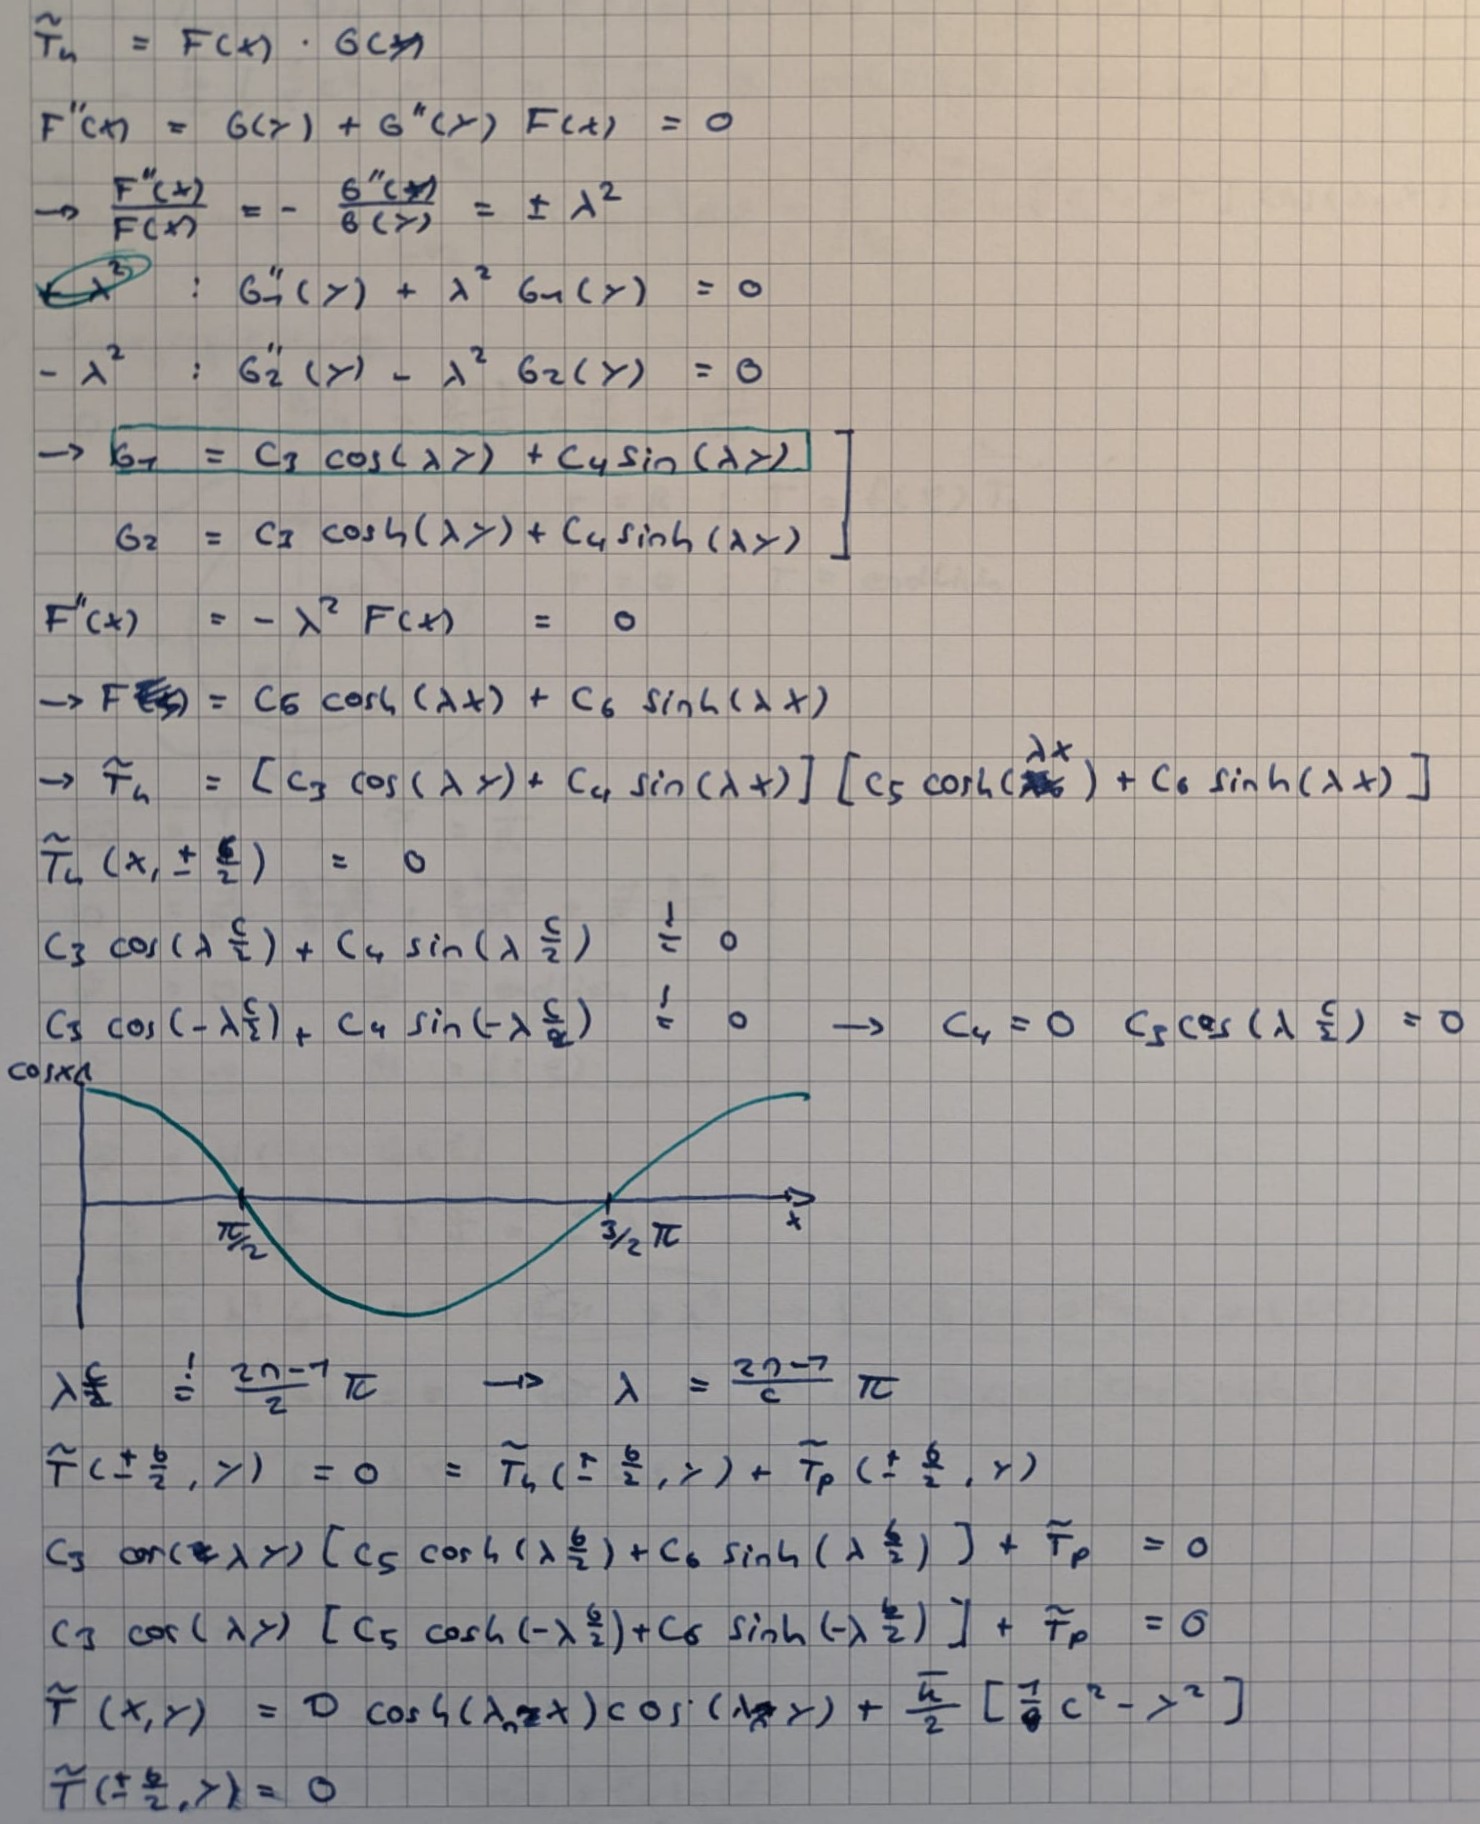 T̃ₕ = F(x) · G(y)
F''(x) = G(y) + G''(y) F(x) = 0
→ F''(x)/F(x) = - G''(y)/G(y) = ± λ²
+ λ² : G₁''(y) + λ² G₁(y) = 0
- λ² : G₂''(y) - λ² G₂(y) = 0
→ G₁ = C₃ cos(λy) + C₄ sin(λy)
G₂ = C₃ cosh(λy) + C₄ sinh(λy)
F''(x) = - λ² F(x) = 0
→ F = C₅ cosh(λx) + C₆ sinh(λx)
→ T̃ₕ = [C₃ cos(λy) + C₄ sin(λx)] [C₅ cosh(λx) + C₆ sinh(λx)]
T̃ₕ (x, ± c/2) = 0
C₃ cos(λ c/2) + C₄ sin(λ c/2) =! 0
C₃ cos(-λ c/2) + C₄ sin(-λ c/2) =! 0 → C₄ = 0 C₃ cos(λ c/2) = 0
cosx
π/2 3/2 π x
λ c/2 =! (2n-1)/2 π → λ = (2n-1)/c π
T̃ (± b/2, y) = 0 = T̃ₕ (± b/2, y) + T̃ₚ (± b/2, y)
C₃ cos(λy) [C₅ cosh(λ b/2) + C₆ sinh(λ b/2)] + T̃ₚ = 0
C₃ cos(λy) [C₅ cosh(-λ b/2) + C₆ sinh(-λ b/2)] + T̃ₚ = 0
T̃ (x,y) = D cosh(λₙ x) cos(λ y) + h̅/2 [1/4 c² - y²]
T̃ (± b/2, y) = 0